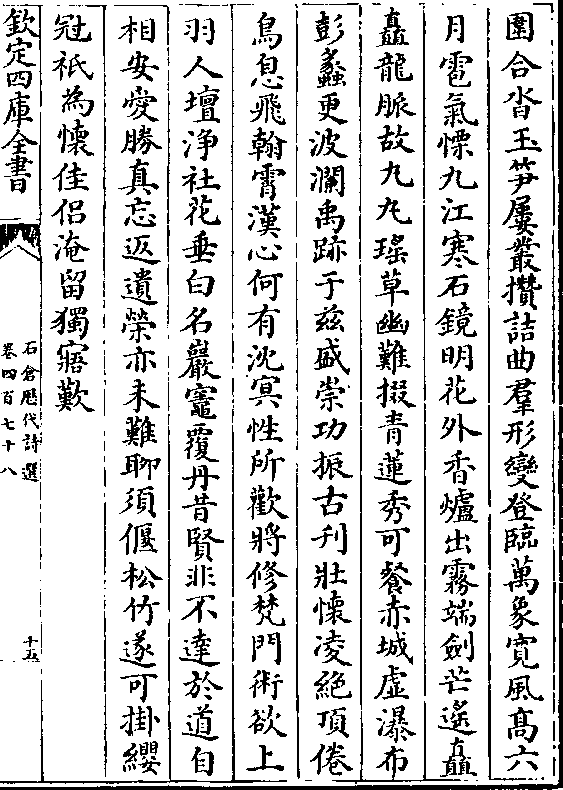 圍合沓玉笋屢叢攢詰曲羣形變登臨萬象寛風髙六
月雹氣慄九江寒石鏡明花外香爐出霧端劍芒遙矗
矗龍脈故九九瑤草幽難掇青蓮秀可餐赤城虛瀑布
彭蠡更波瀾禹跡于兹盛崇功振古刋壯懷凌絶頂倦
鳥息飛翰霄漢心何有沈冥性所歡將修梵門術欲上
羽人壇浄社花垂白名巖竈覆丹昔賢非不達於道自
相安愛勝真忘返遺榮亦未難聊須偃松竹遂可掛纓
冠祇為懷佳侣淹留獨寤歎
欽定四庫全書
石倉歴代詩選
卷四百七十八
十五